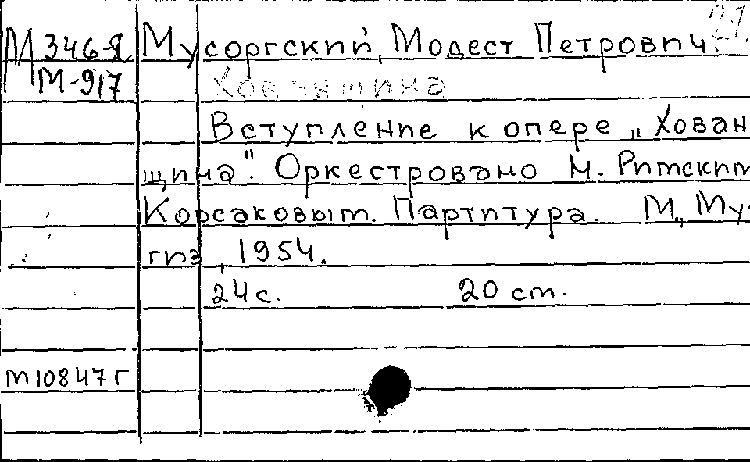 М 346-Я Мусоргский, Модест Петрович. 21.
М-917 Хованщина
Вступление к опере „Хован
щина". Оркестровано Н. Римским
Корсаковым. Партитура. М., Му-
гиз, 1954.
24 с. 20 см.
М10847г